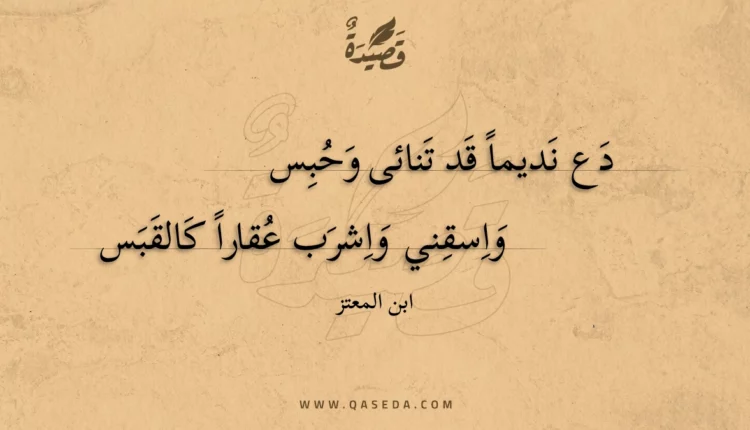 قَصِيْدَةٌ
دَع نَديماً قَد تَنائى وَحُبِس
وَاِسقِني وَاِشرَب عُقاراً كَالقَبَس
ابن المعتز
WWW.QASEDA.COM